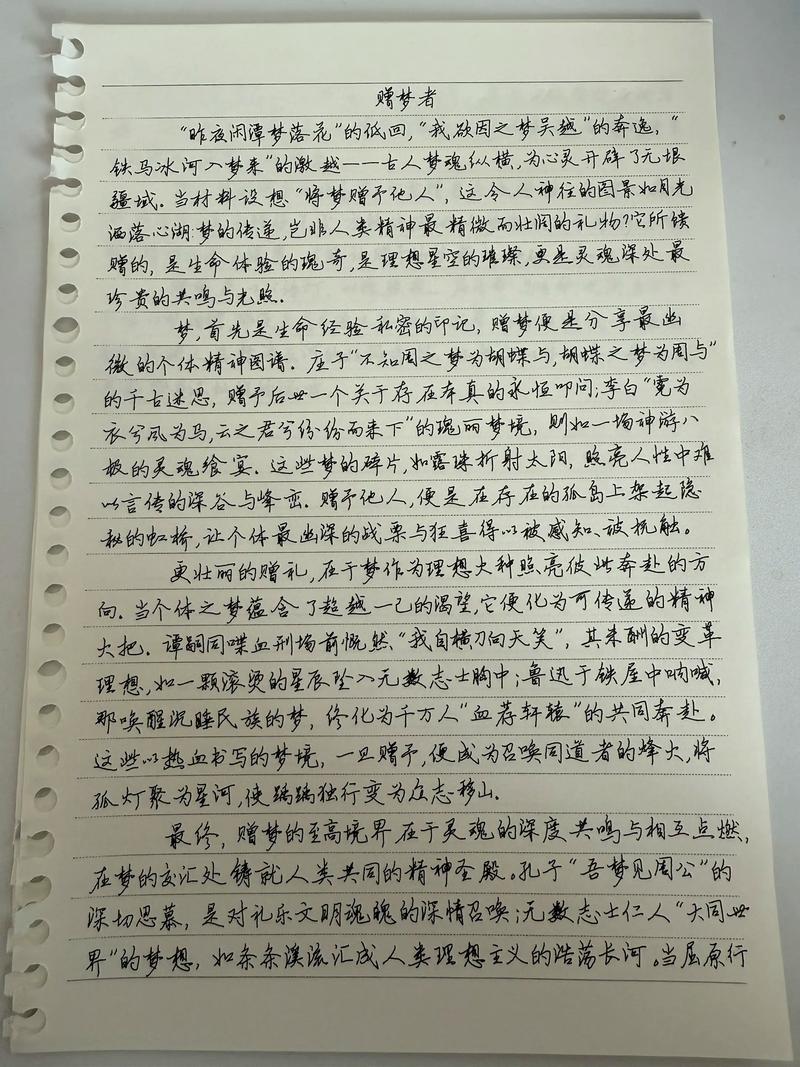 赠梦者
"昨夜闲潭梦落花"的低回,"我欲因之梦吴越"的奔逸,"
铁马冰河入梦来"的激越——古人梦魂纵横,为心灵开辟了无垠
疆域.当材料设想"将梦赠予他人",这令人神往的图景如月光
洒落心湖:梦的传递,岂非人类精神最精微而壮阔的礼物?它所馈
赠的,是生命体验的瑰奇,是理想星空的璀璨,更是灵魂深处最
珍贵的共鸣与光照.
梦,首先是生命经验私密的印记,赠梦便是分享最幽
微的个体精神图谱.庄子"不知周之梦为胡蝶与,胡蝶之梦为周与"
的千古迷思,赠予后世一个关于存在本真的永恒叩问;李白"霓为
衣兮风为马,云之君兮纷纷而来下"的瑰丽梦境,则如一场神游八
极的灵魂飨宴.这些梦的碎片,如露珠折射太阳,照亮人性中难
以言传的深谷与峰峦.赠予他人,便是在存在的孤岛上架起隐
秘的虹桥,让个体最幽深的战栗与狂喜得以被感知、被抚触。
更壮丽的赠礼,在于梦作为理想火种照亮彼此奔赴的方
向.当个体之梦蕴含了超越一己的渴望,它便化为可传递的精神
火把.谭嗣同喋血刑场前慨然"我自横刀向天笑",其未酬的变革
理想,如一颗滚烫的星辰坠入无数志士胸中;鲁迅于铁屋中呐喊,
那唤醒沉睡民族的梦,终化为千万人"血荐轩辕"的共同奔赴。
这些以热血书写的梦境,一旦赠予,便成为召唤同道者的烽火,将
孤灯聚为星河,使踽踽独行变为众志移山.
最终,赠梦的至高境界在于灵魂的深度共鸣与相互点燃,
在梦的交汇处铸就人类共同的精神圣殿。孔子"吾梦见周公"的
深切思慕,是对礼乐文明魂魄的深情召唤;无数志士仁人"大同世
界"的梦想,如条条溪流汇成人类理想主义的浩荡长河。当屈原行